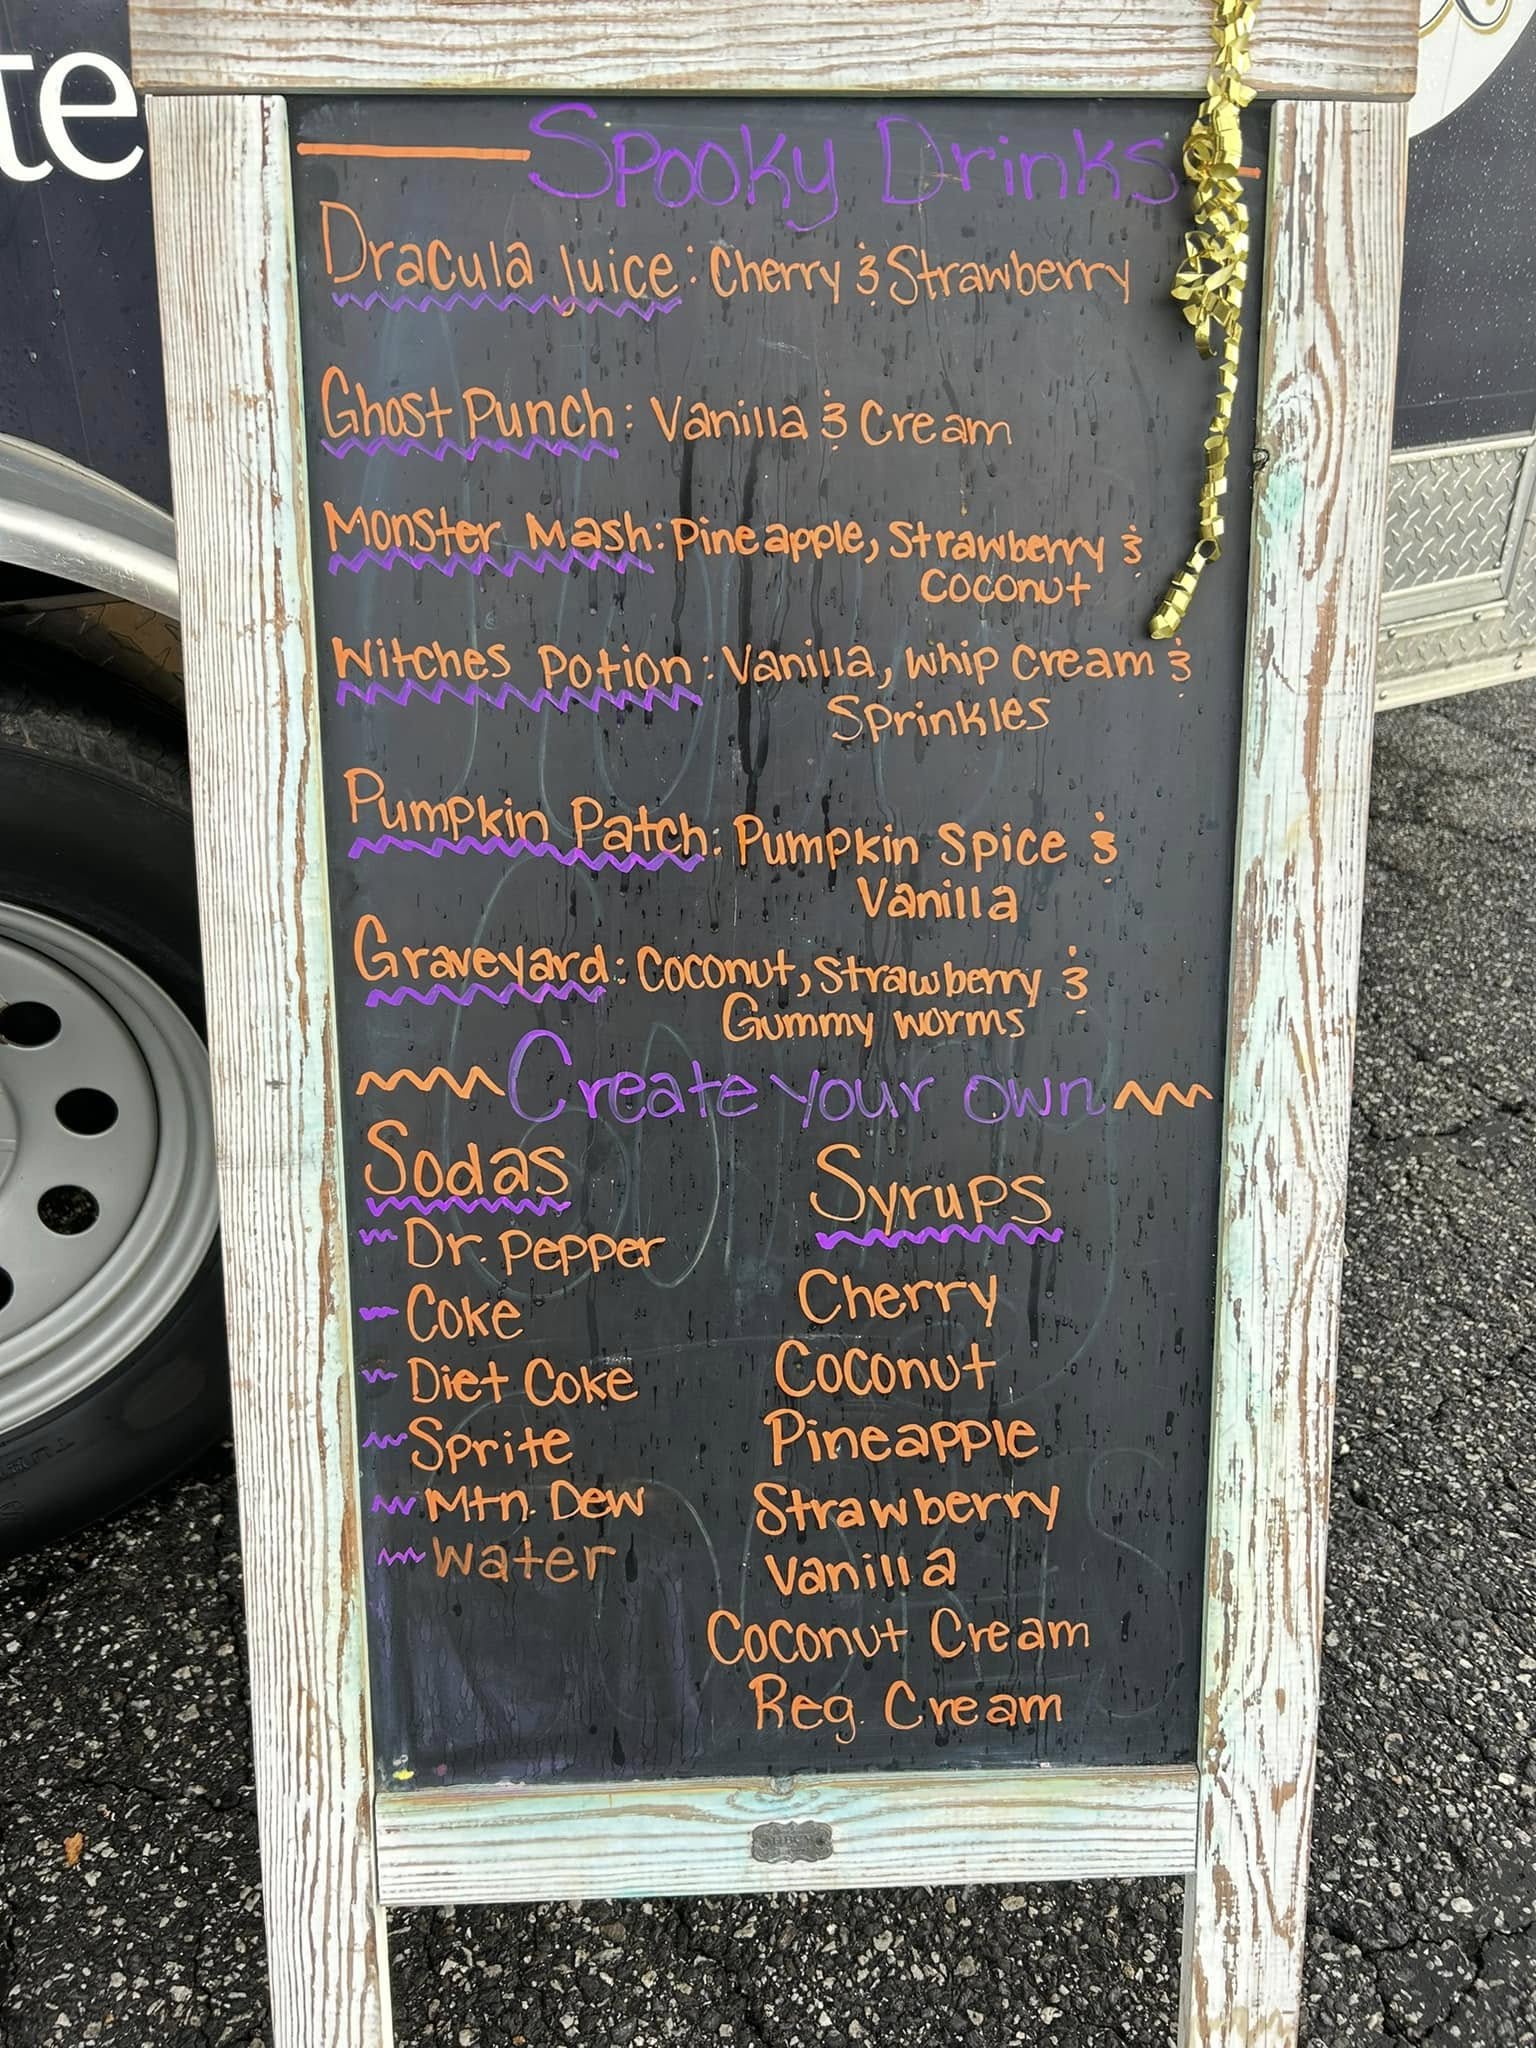 te
Spooky Drinks
Dracula Juice: Cherry & Strawberry
Ghost Punch: Vanilla & Cream
Monster Mash: Pineapple, Strawberry &
Coconut
Witches Potion: Vanilla, Whip Cream &
Sprinkles
Pumpkin Patch: Pumpkin Spice &
Vanilla
Graveyard: Coconut, Strawberry &
Gummy worms
Create your own
Sodas
Dr. Pepper
Coke
Diet Coke
Sprite
Mtn. Dew
Water
Syrups
Cherry
Coconut
Pineapple
Strawberry
Vanilla
Coconut Cream
Reg. Cream